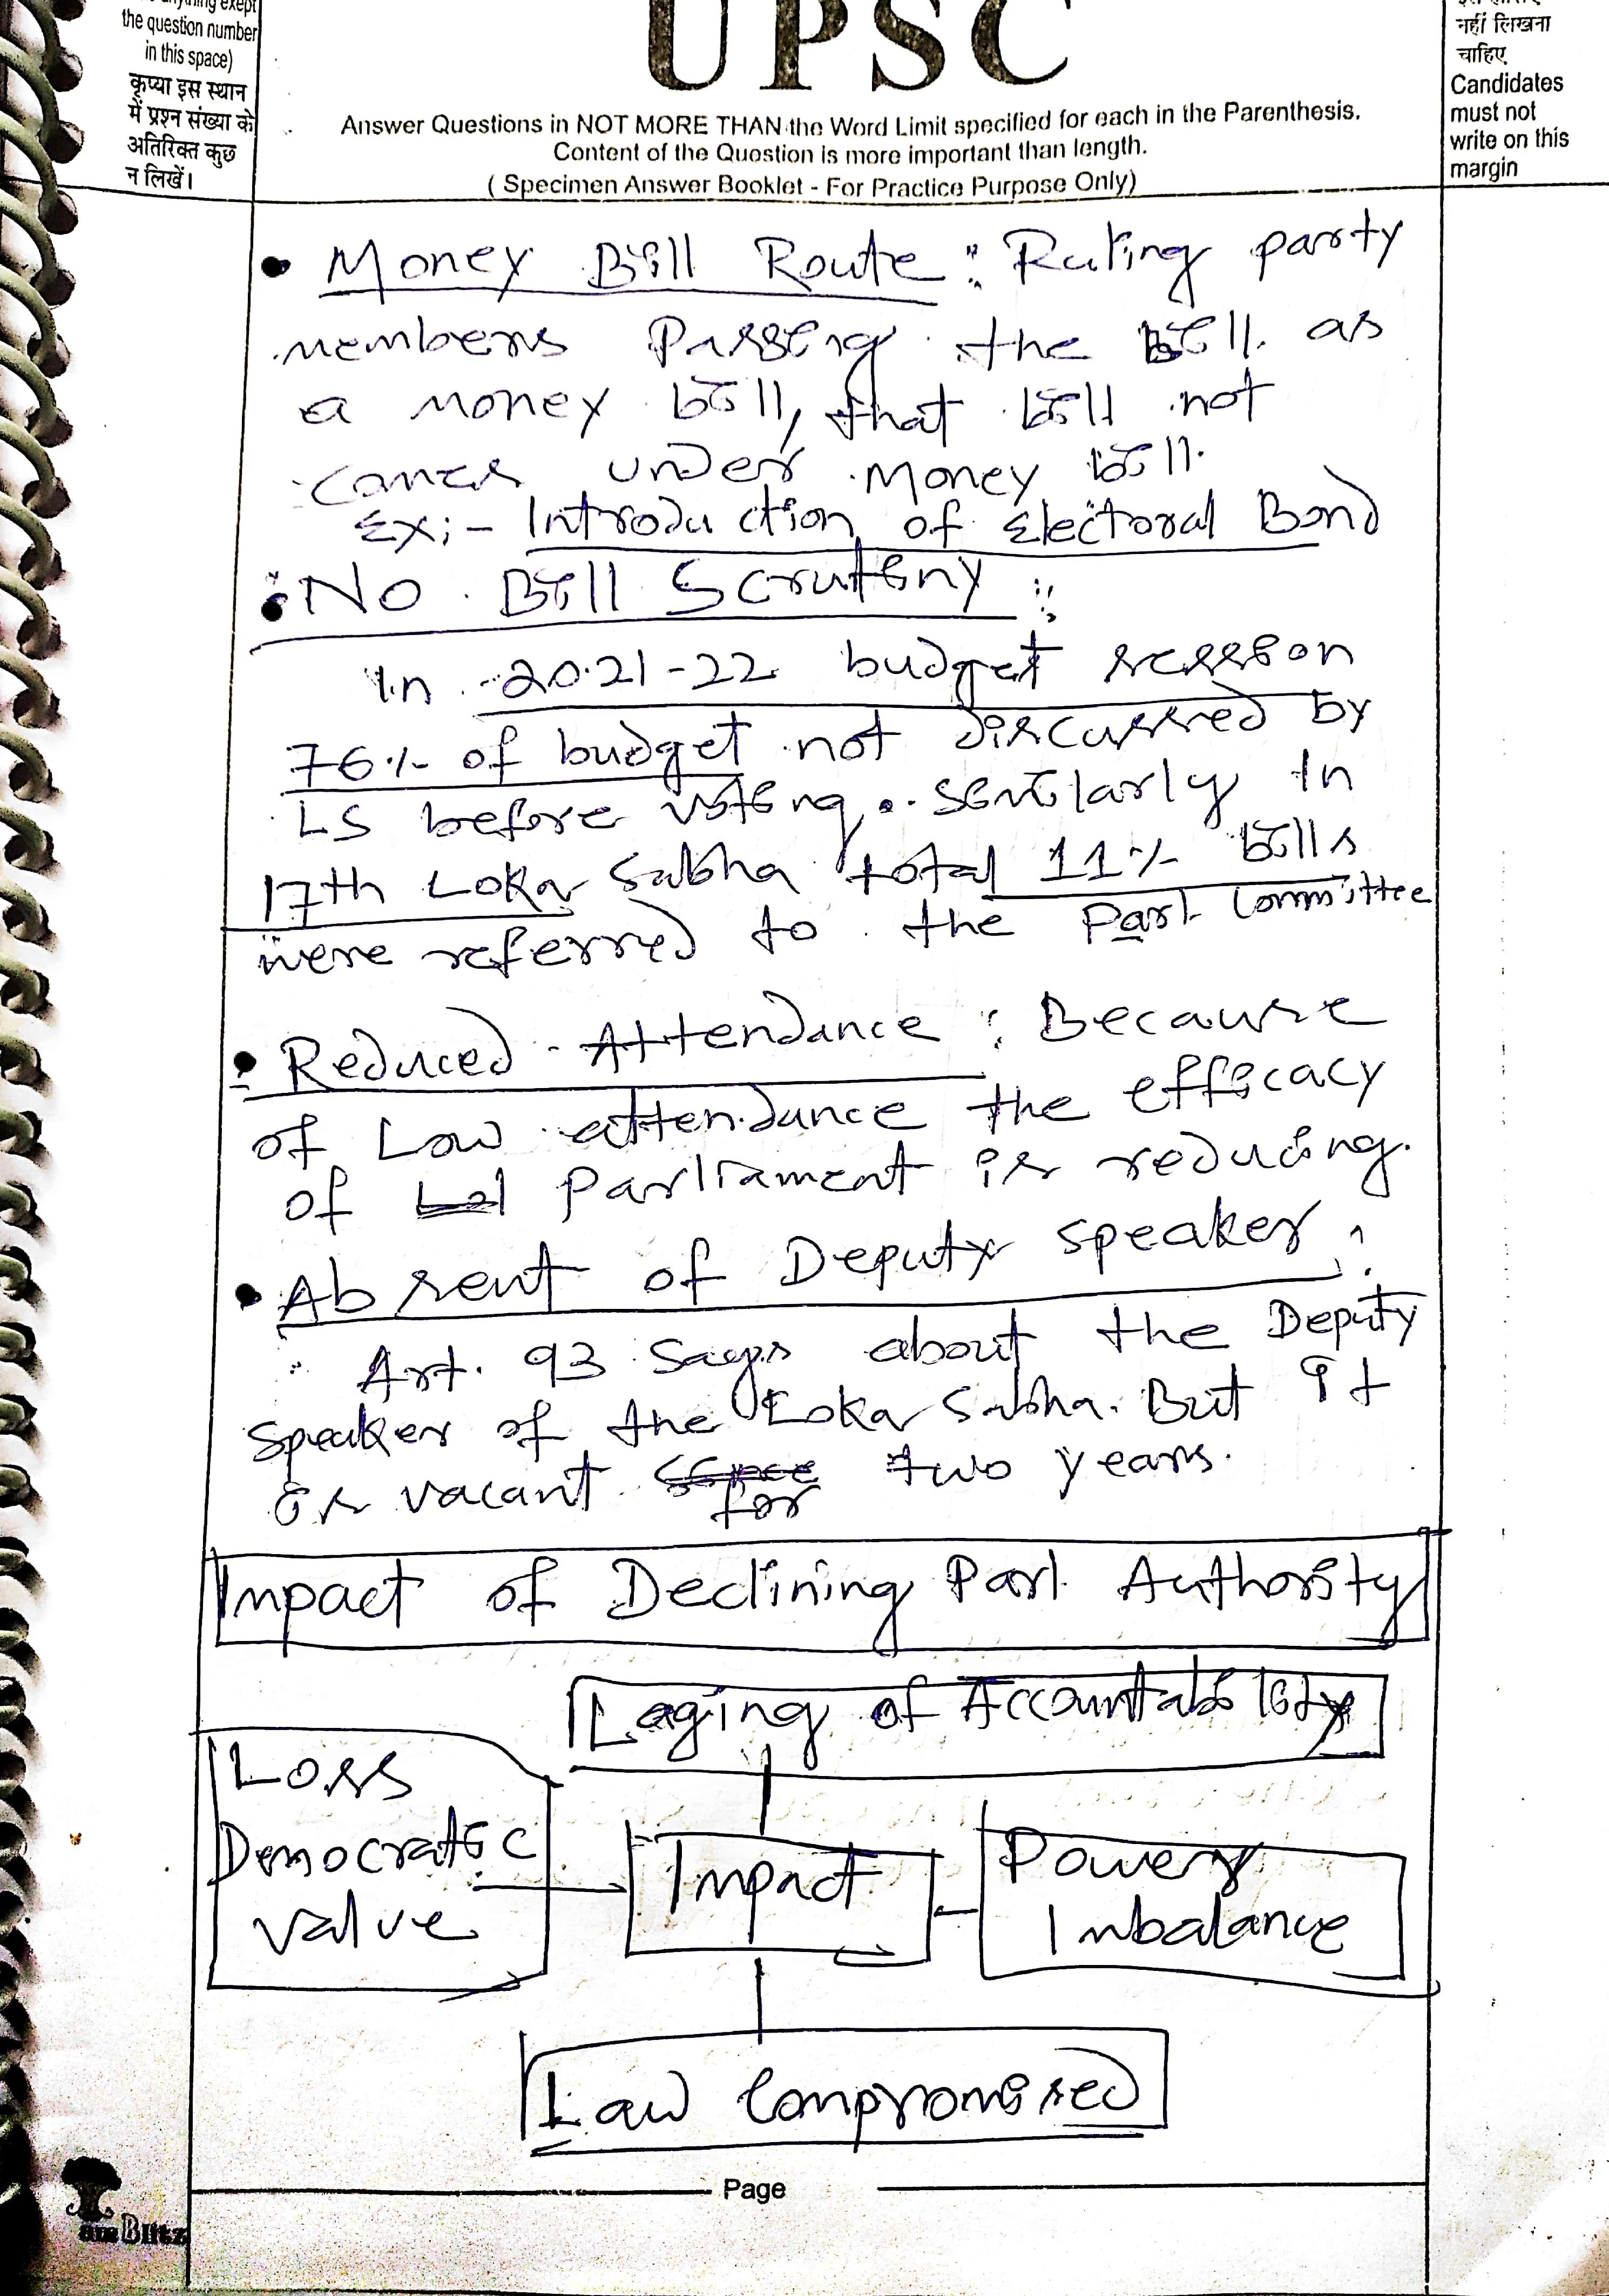 anything exept
the question number
in this space)
कृप्या इस स्थान
में प्रश्न संख्या के
अतिरिक्त कुछ
न लिखें।
UPSC
Answer Questions in NOT MORE THAN the Word Limit specified for each in the Parenthesis.
Content of the Question is more important than length.
( Specimen Answer Booklet - For Practice Purpose Only)
नहीं लिखना
चाहिए
Candidates
must not
write on this
margin
• Money Bill Route : Ruling party
members Passing the bill as
a money bill, that bill not
comes under money bill.
Ex:- Introduction of Electoral Bond
• No Bill Scrutiny :
In 2021-22 budget session
76% of budget not discussed by
LS before voting. Similarly in
17th Loka Sabha total 11% bills
were referred to the Parl. Committee
• Reduced Attendance : Because
of Low attendance the efficacy
of Parliament is reducing.
• Absent of Deputy speaker :
Art. 93 says about the Deputy
speaker of the Loka Sabha. But it
is vacant for two years.
Impact of Declining Parl. Authority
Laging of Accountability
Loss
Democratic
value
Impact
Power
Imbalance
Law Compromised
Page
Blitz